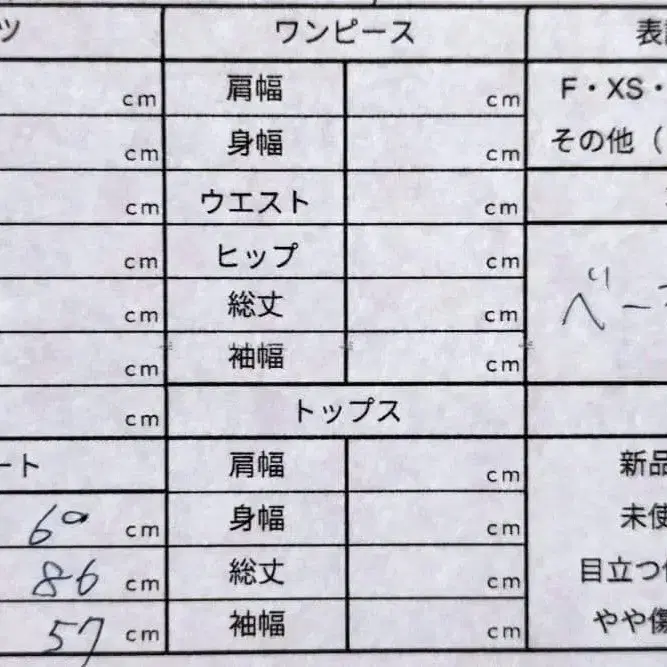 ツ ワンピース 表
cm 肩幅 cm F・XS・
cm 身幅 cm その他（
cm ウエスト cm
cm ヒップ cm
ベー
cm 総丈 cm
cm 袖幅 cm
cm トップス
ート 肩幅 cm 新品
60 cm 身幅 cm 未使
86 cm 総丈 cm 目立つ
57 cm 袖幅 cm やや傷